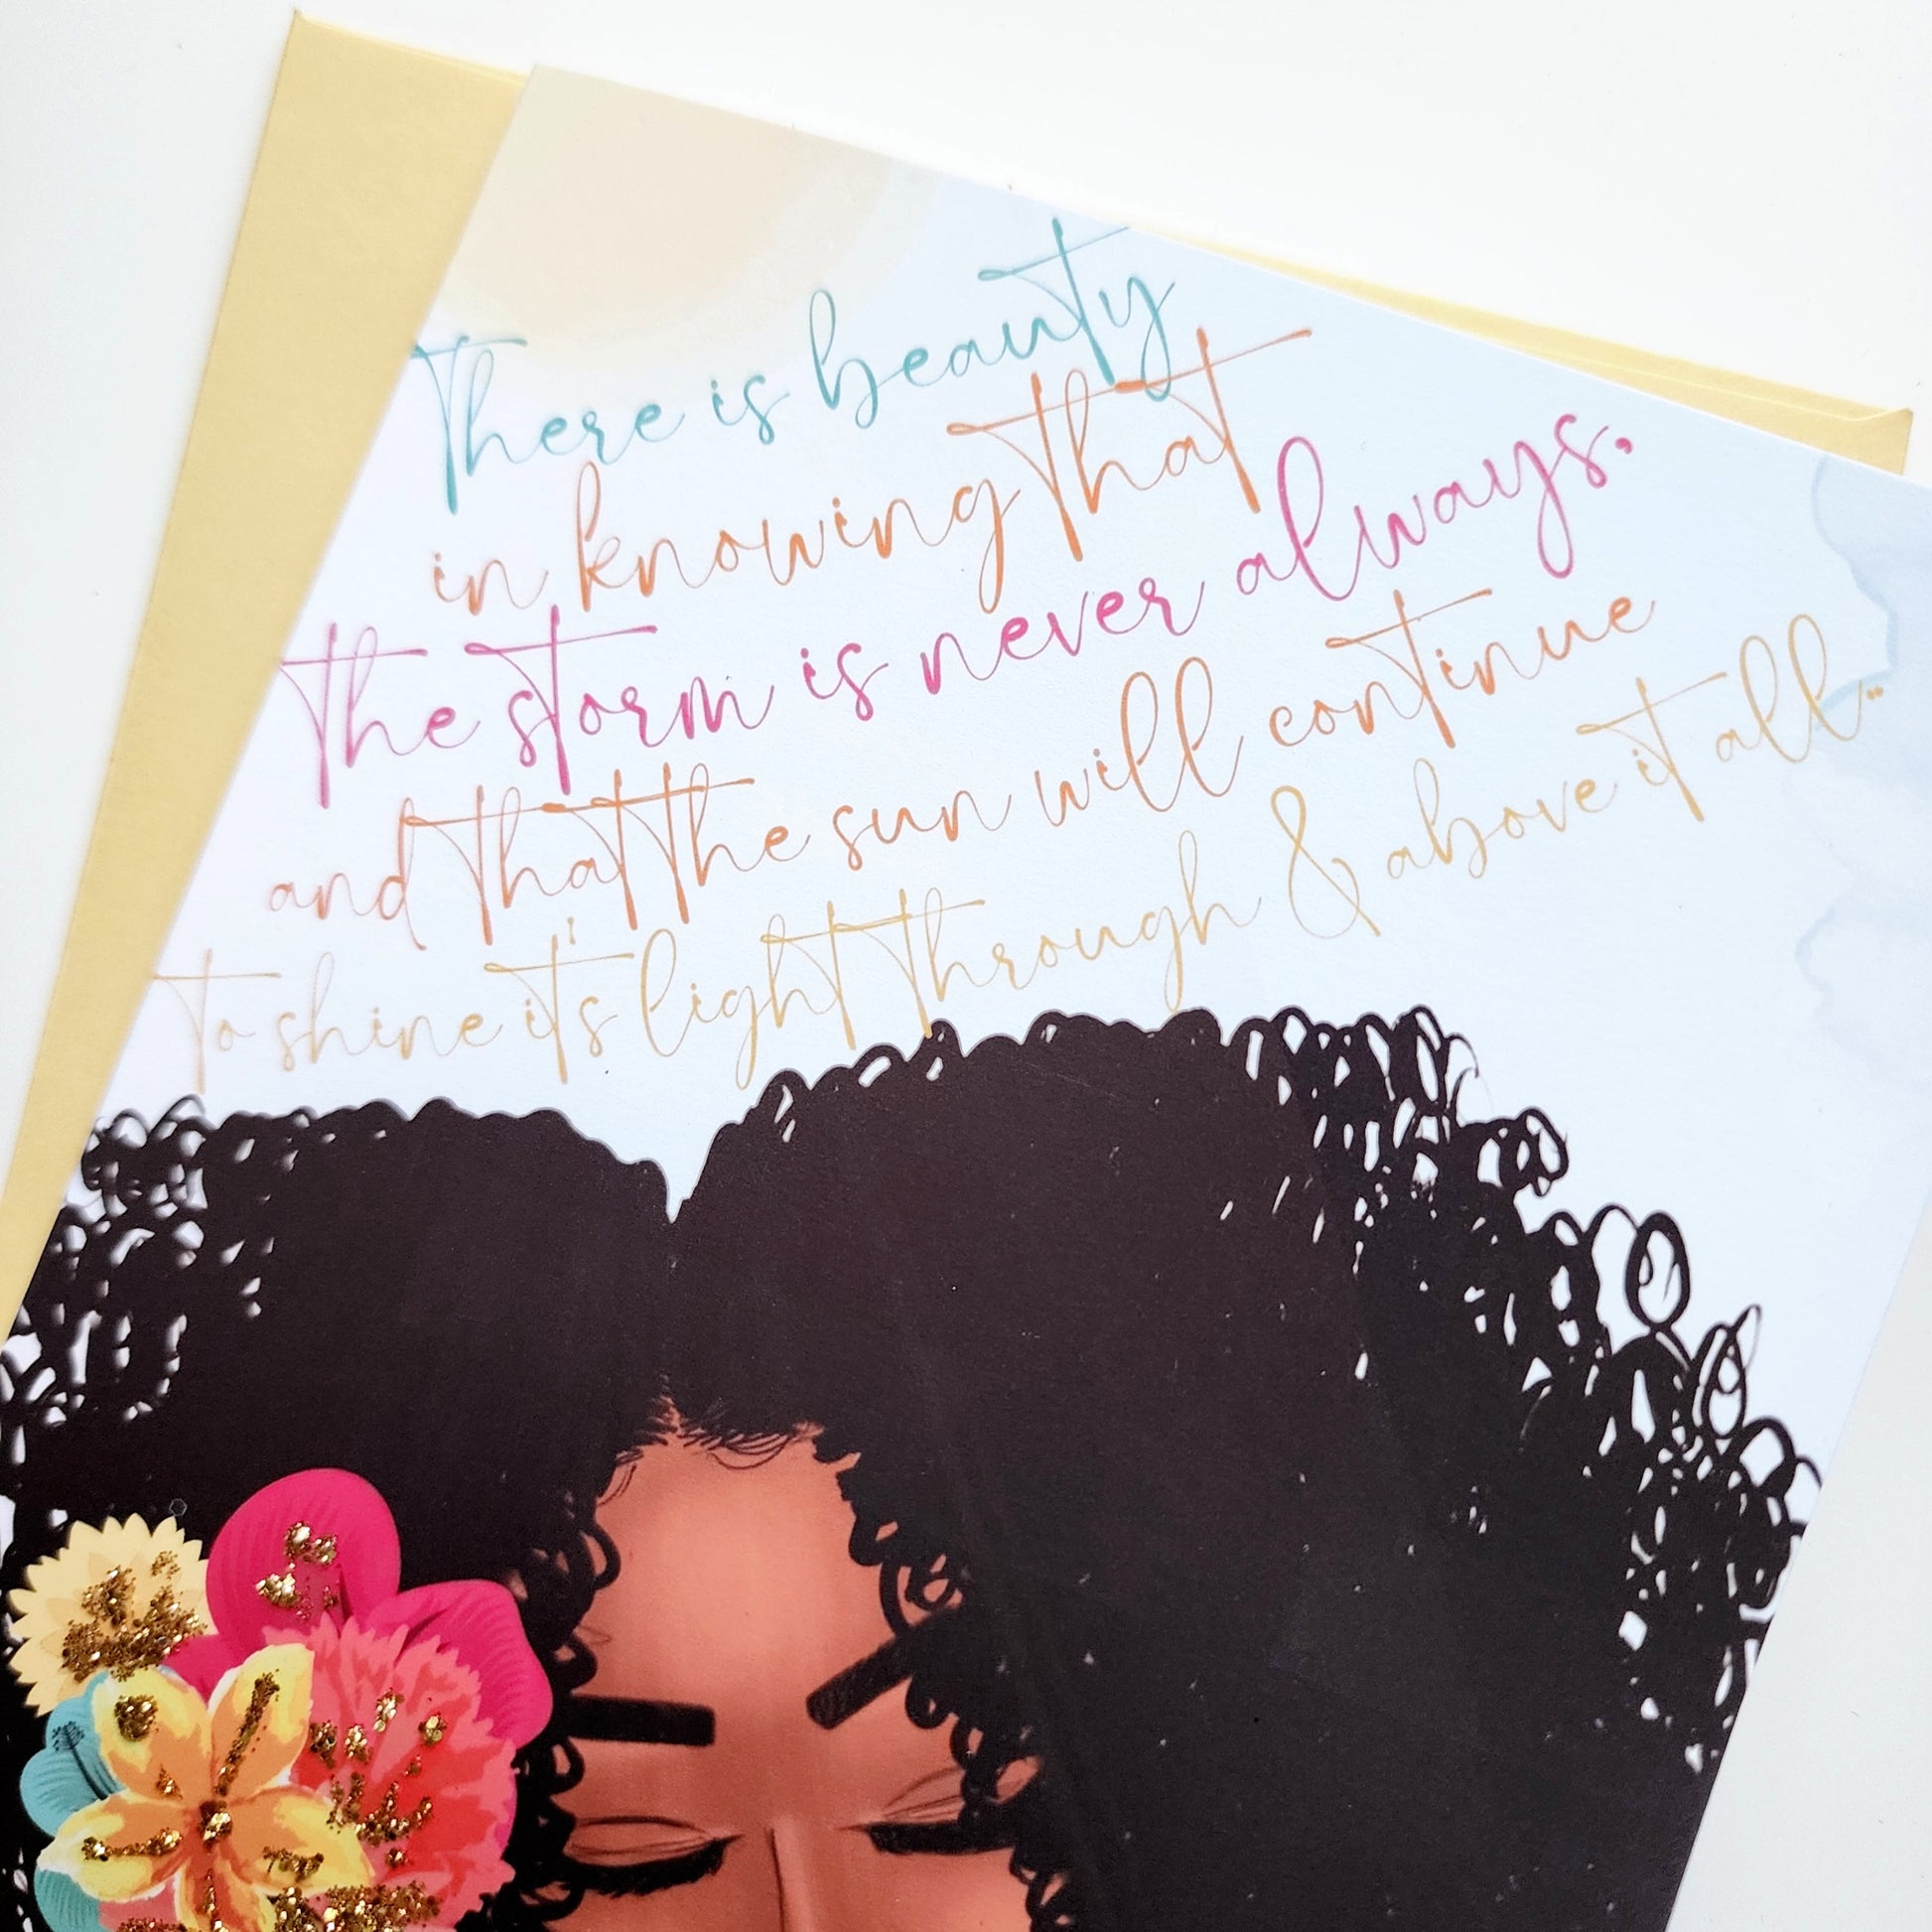 There is beauty
in knowing that
the storm is never always,
and that the sun will continue
to shine it's light through & above it all"